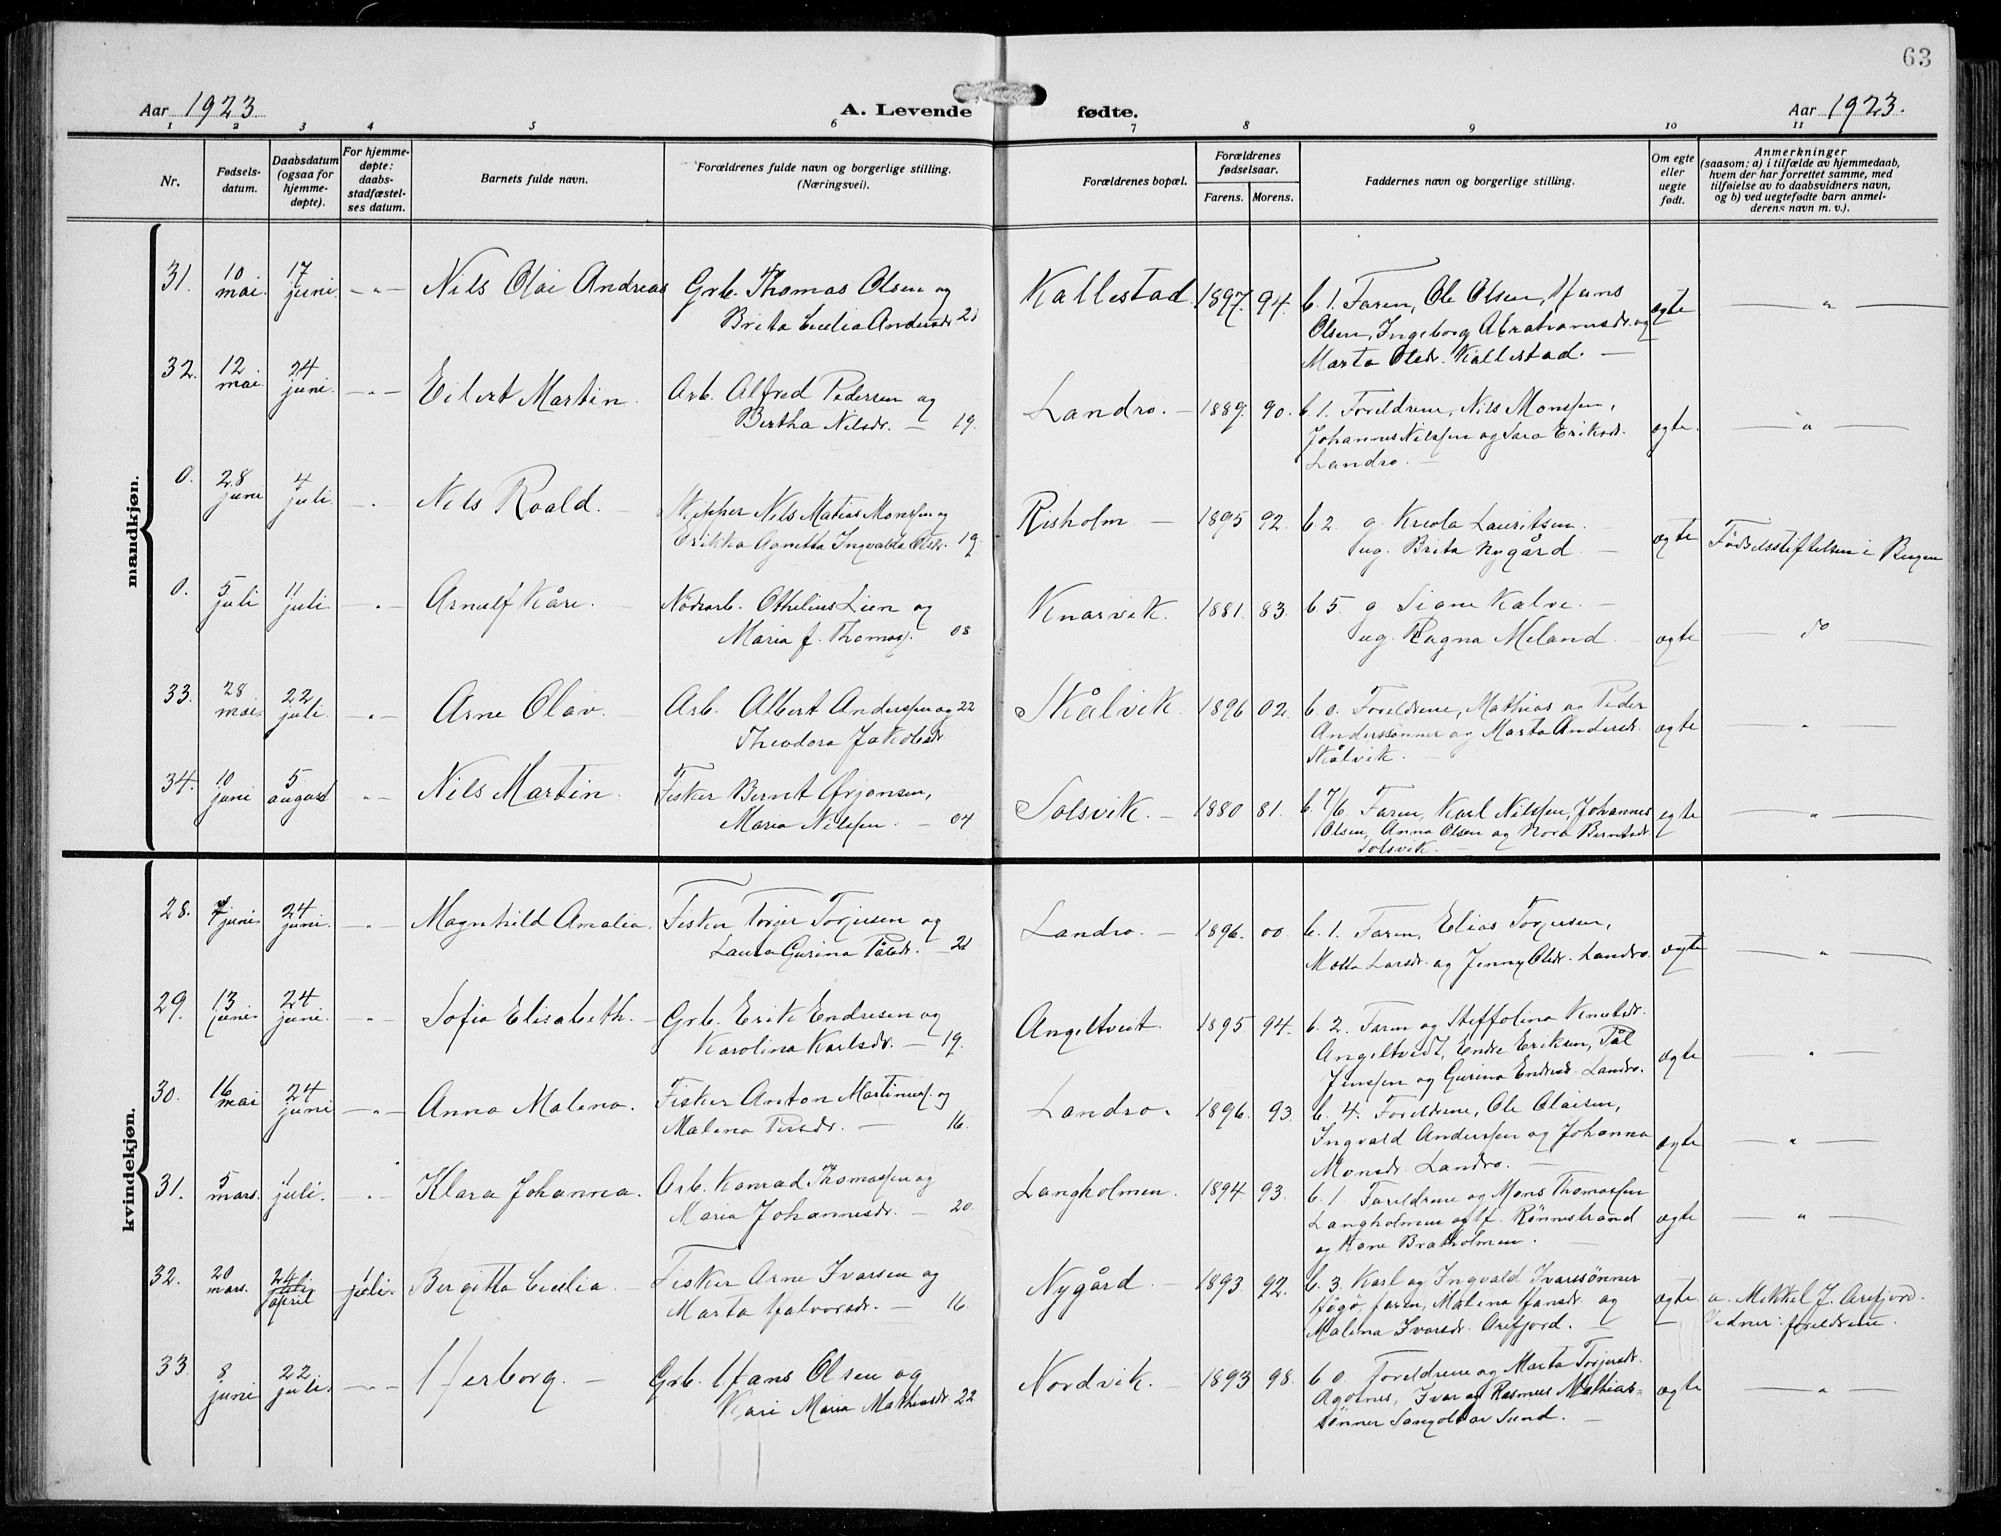 63
Aar 1923
A. Levende fødte.
Aar 1923.
1 2 3 4 5 6 7 8 9 10 11
Nr.
Fødsels-
datum.
Daabsdatum
(ogsaa for
hjemme-
døpte).
For hjemme-
døpte:
daabs-
stadfæstel-
ses datum.
Barnets fulde navn.
Forældrenes fulde navn og borgerlige stilling.
(Næringsvei).
Forældrenes bopæl.
Forældrenes
fødselsaar.
Farens. Morens.
Faddernes navn og borgerlige stilling.
Om egte
eller
uegte
født.
Anmerkninger
(saasom: a) i tilfælde av hjemmedaab,
hvem der har forrettet samme, med
tilføielse av to daabsvidners navn,
og b) ved uegtefødte barn anmel-
derens navn m. v.).
mandkjøn.
31. 10 mai. 17 juni. - " - Nils Olai Andreas Grb. Thomas Olsen og
Brita Cecilia Andersdr. 21
Kallestad 1897. 94. b. 1. Faren, Ole Olsen, Hans
Olsen, Ingeborg Abrahamsdr. og
Marta Olsdr. Kallestad. —
egte — " —
32. 12. mai. 24 juni. - " - Eilert Martin. Arb. Alfred Pedersen og
Bertha Nilsdr. — 19.
Landro. — 1889. 90. b. 1. Foreldrene, Nils Monssen,
Johannes Nilssen og Sara Eriksdr.
Landro. —
egte. — " —
0. 28 juni 4 juli - " - Nils Roald. — Skipper Nils Matias Monssen og
Erikka Agnetta Ingvalda Olsdr. 19.
Risholm — 1895 92. b 2. g. Kreola Lauritsen. —
ug. Brita Nygård —
egte Fødselsstiftelsen i Bergen
0. 5 juli 11 juli - " - Arnulf Kåre. — Nödsarb. Othelius Lien og
Maria f. Thomas. 08
Knarvik. 1881. 83. b 5. g Signe Kalve. —
ug. Ragna Meland —
egte — do —
33. 28 mai. 22 juli. - " - Arne Olav. — Arb. Albert Anderssen og 22
Theodora Jakobsdr.
Skålvik. 1896 02. b. 0. Foreldrene, Mathias og Peder
Anderssønner og Marta Andersdr.
Skålvik. —
egte "
34. 10 juni 5 august - " - Nils Martin. Fisker Bernt Ørjansen,
Maria Nilssen. — 04
Solsvik. — 1880 81. b. 7/6. Faren, Karl Nilssen, Johannes
Olsen, Anna Olsen og Nora Berntsdr.
Solsvik. —
egte — " —
kvindekjøn.
28. 7 juni. 24 juni. - " - Magnhild Amalia. Fisker Torger Torjusen og
Laura Gurina Pålsdr. — 21
Landro. — 1896. 00. b. 1. Faren, Elias Torjusen,
Larsdr. og Jenny Olsdr. Landro.
egte — " —
29. 13 juni. 24 juni. - " - Sofia Elisabeth. — Grb. Erik Endresen og
Karolina Karlsdr. — 19.
Angeltveit. 1895 94. b. 2. Faren og Steffolina Knutsdr.
Angeltveit, Endre Eriksen, Pål
Jenssen og Gurina Endresdr. Landro.
egte — " —
30. 16 mai 24 juni — " — Anna Malena. Fisker Anton Martinus. og
Malena Persdr. — 16.
Landro. 1896. 93. b. 4. Foreldrene, Ole Olaisen,
Ingvald Anderssen og Johanna
Monsdr. Landro. —
egte — " —
31. 5 mars. 1 juli. - " - Klara Johanna. Arb. Konrad Thomassen og
Maria Johannesdr. — 20.
Langholmen. 1894 93. b. 1. Foreldrene og Mons Thomassen
Langholmen og Rönnestrand
og Hane Bratholmen. —
egte — " —
32. 20 mars. 24 april 1 juli. Bergitta Cecilia. — Fisker Arne Ivarsen og
Marta Halvorsdr. — 16.
Nygård — 1893. 92. b. 3. Karl og Ingvald Ivarssønner
faren, Malena Hansdr. og
Malena Ivarsdr. Arefjord. —
egte. a. Mikkel J. Arefjord.
Vidner: foreldrene.
33. 8 juni 22 juli. - " - Herborg. — Grb. Hans Olsen og
Kari Maria Mathiasdr. 22
Nordvik. — 1893 98. b 0. Foreldrene og Marta Torjersdr.
Agotnes, Ivar og Rasmus Mathias-
sönner Sangolt av Sund. —
egte — " —